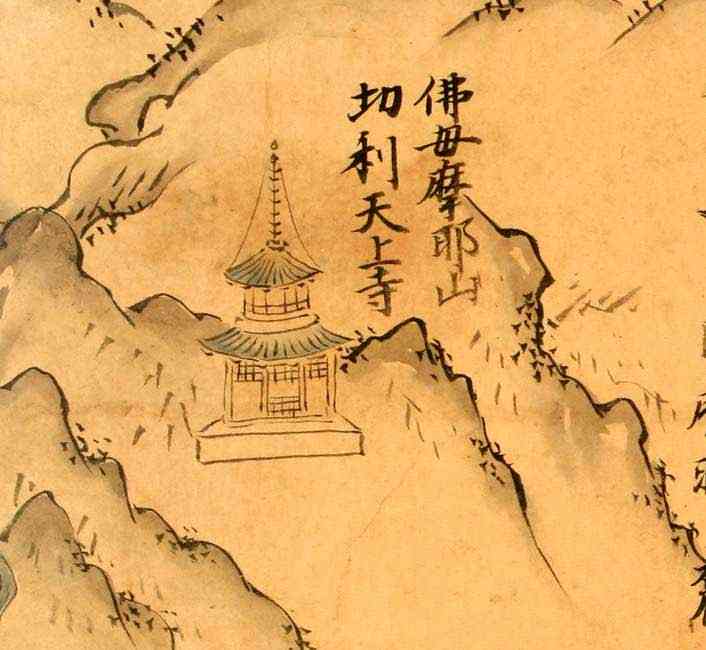 佛母摩耶山
切利天上寺